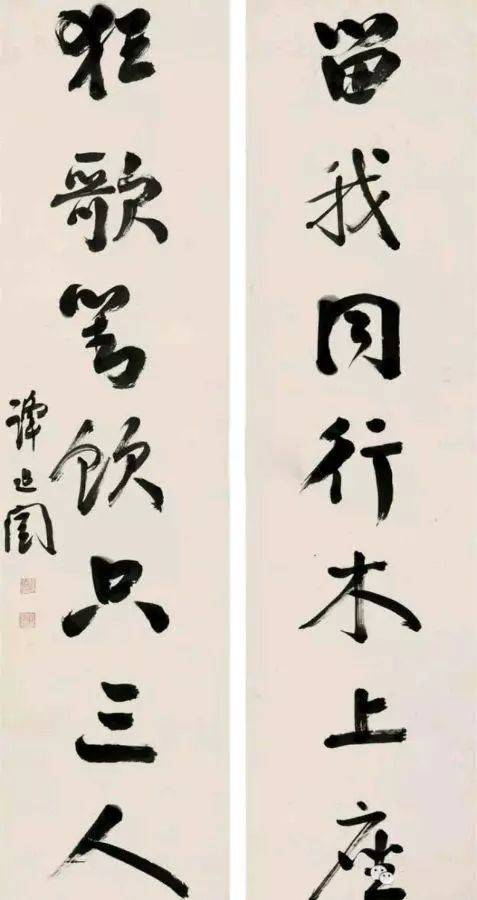 留我同行木上座
狂歌飲只三人
譚延闓